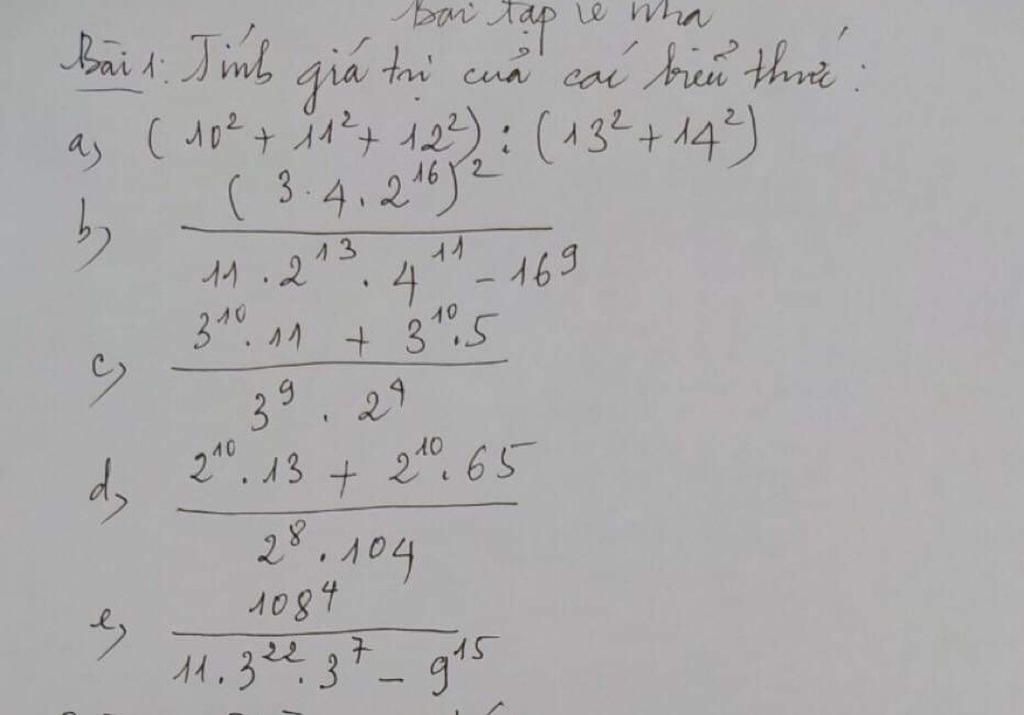 Bài tập về nhà
Bài 1: Tính giá trị của các biểu thức:
a, (10² + 11² + 12²) : (13² + 14²)
b, (3 · 4 . 2¹⁶)² / 11 . 2¹³ . 4¹¹ - 16⁹
c, 3¹⁰ . 11 + 3¹⁰ . 5 / 3⁹ . 2⁴
d, 2¹⁰ . 13 + 2¹⁰ . 65 / 2⁸ . 104
e, 108⁴ / 11 . 3²² . 3⁷ - 9¹⁵